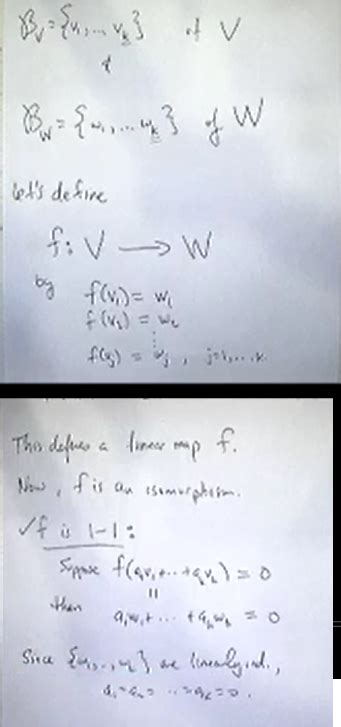 B_V = {v₁, ... v_k} of V
&
B_W = {w₁, ... w_k} of W
Let's define
f: V → W
by f(v₁) = w₁
f(v₂) = w₂
⋮
f(vⱼ) = wⱼ, j=1,...k.
This defines a linear map f.
Now, f is an isomorphism.
✓f is 1-1:
Suppose f(a₁v₁+...+a_kv_k) = 0
=
then a₁w₁+ ... + a_kw_k = 0
Since {w₁,..,w_k} are linearly ind.,
a₁=a₂= ..=a_k=0.